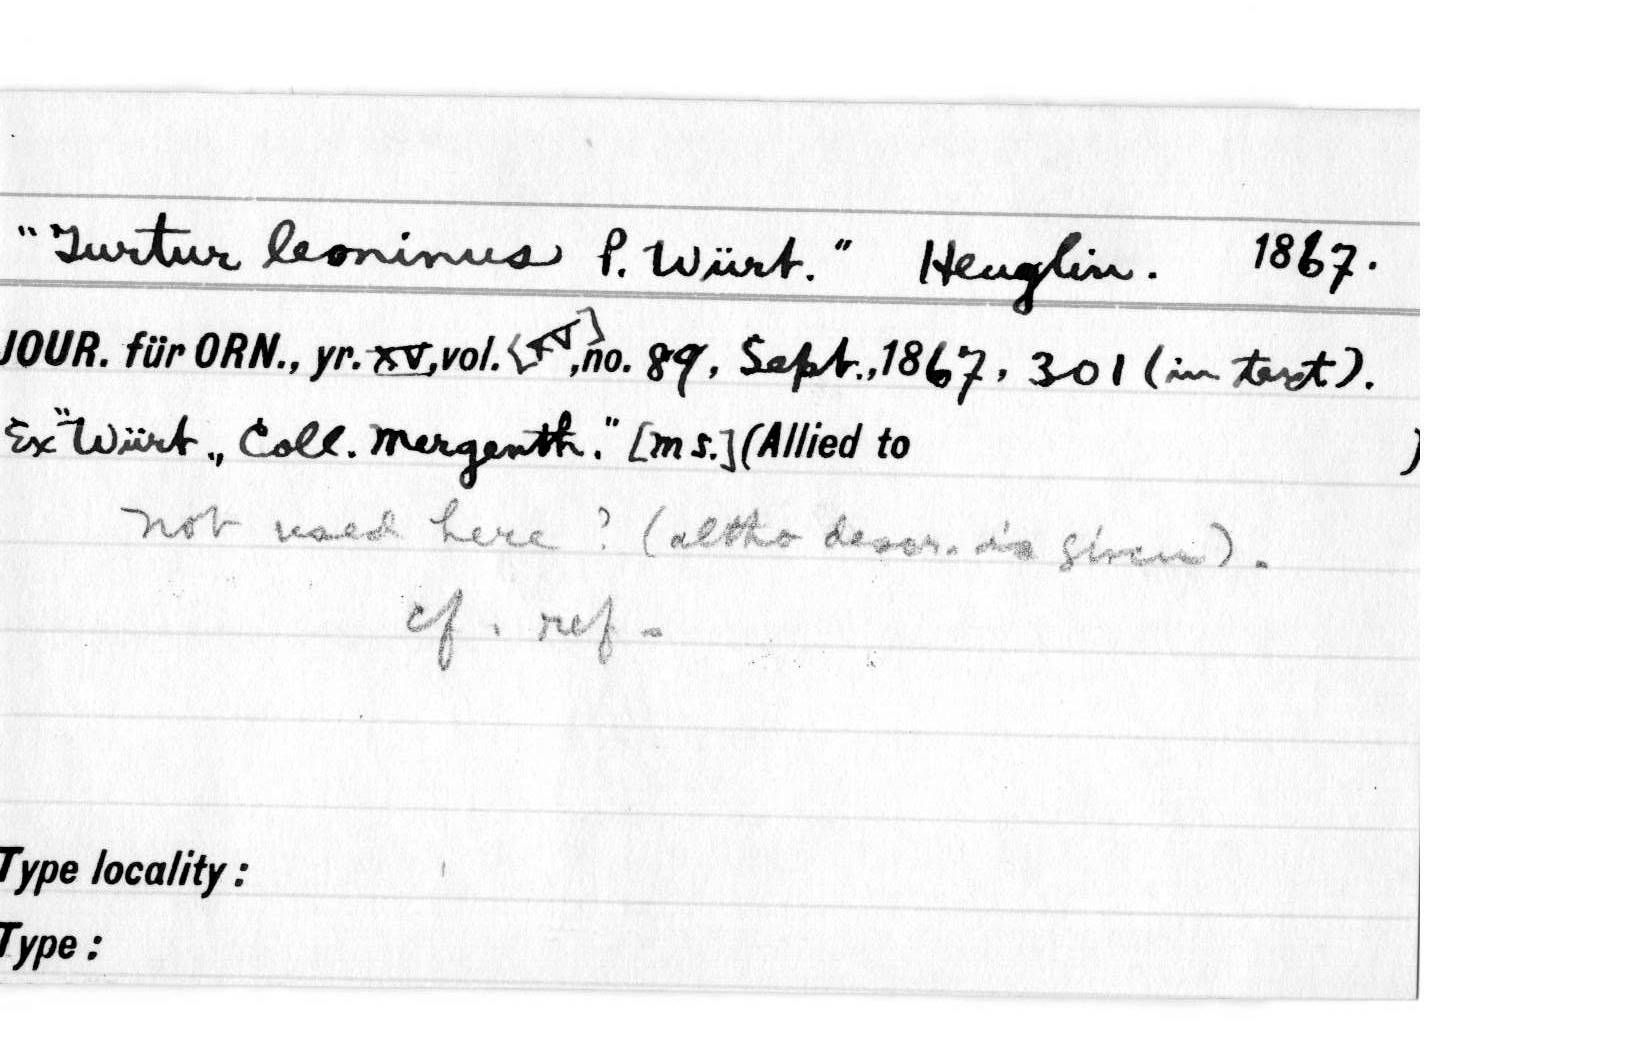 "Turtur leoninus P. Würt." Heuglin. 1867.
JOUR. für ORN., yr. XV, vol. [XV], no. 89, Sept., 1867, 301 (in text).
Ex "Würt., Coll. Mergenth." [ms.] (Allied to )
not used here? (altho descr. is given).
cf. ref.
Type locality:
Type: